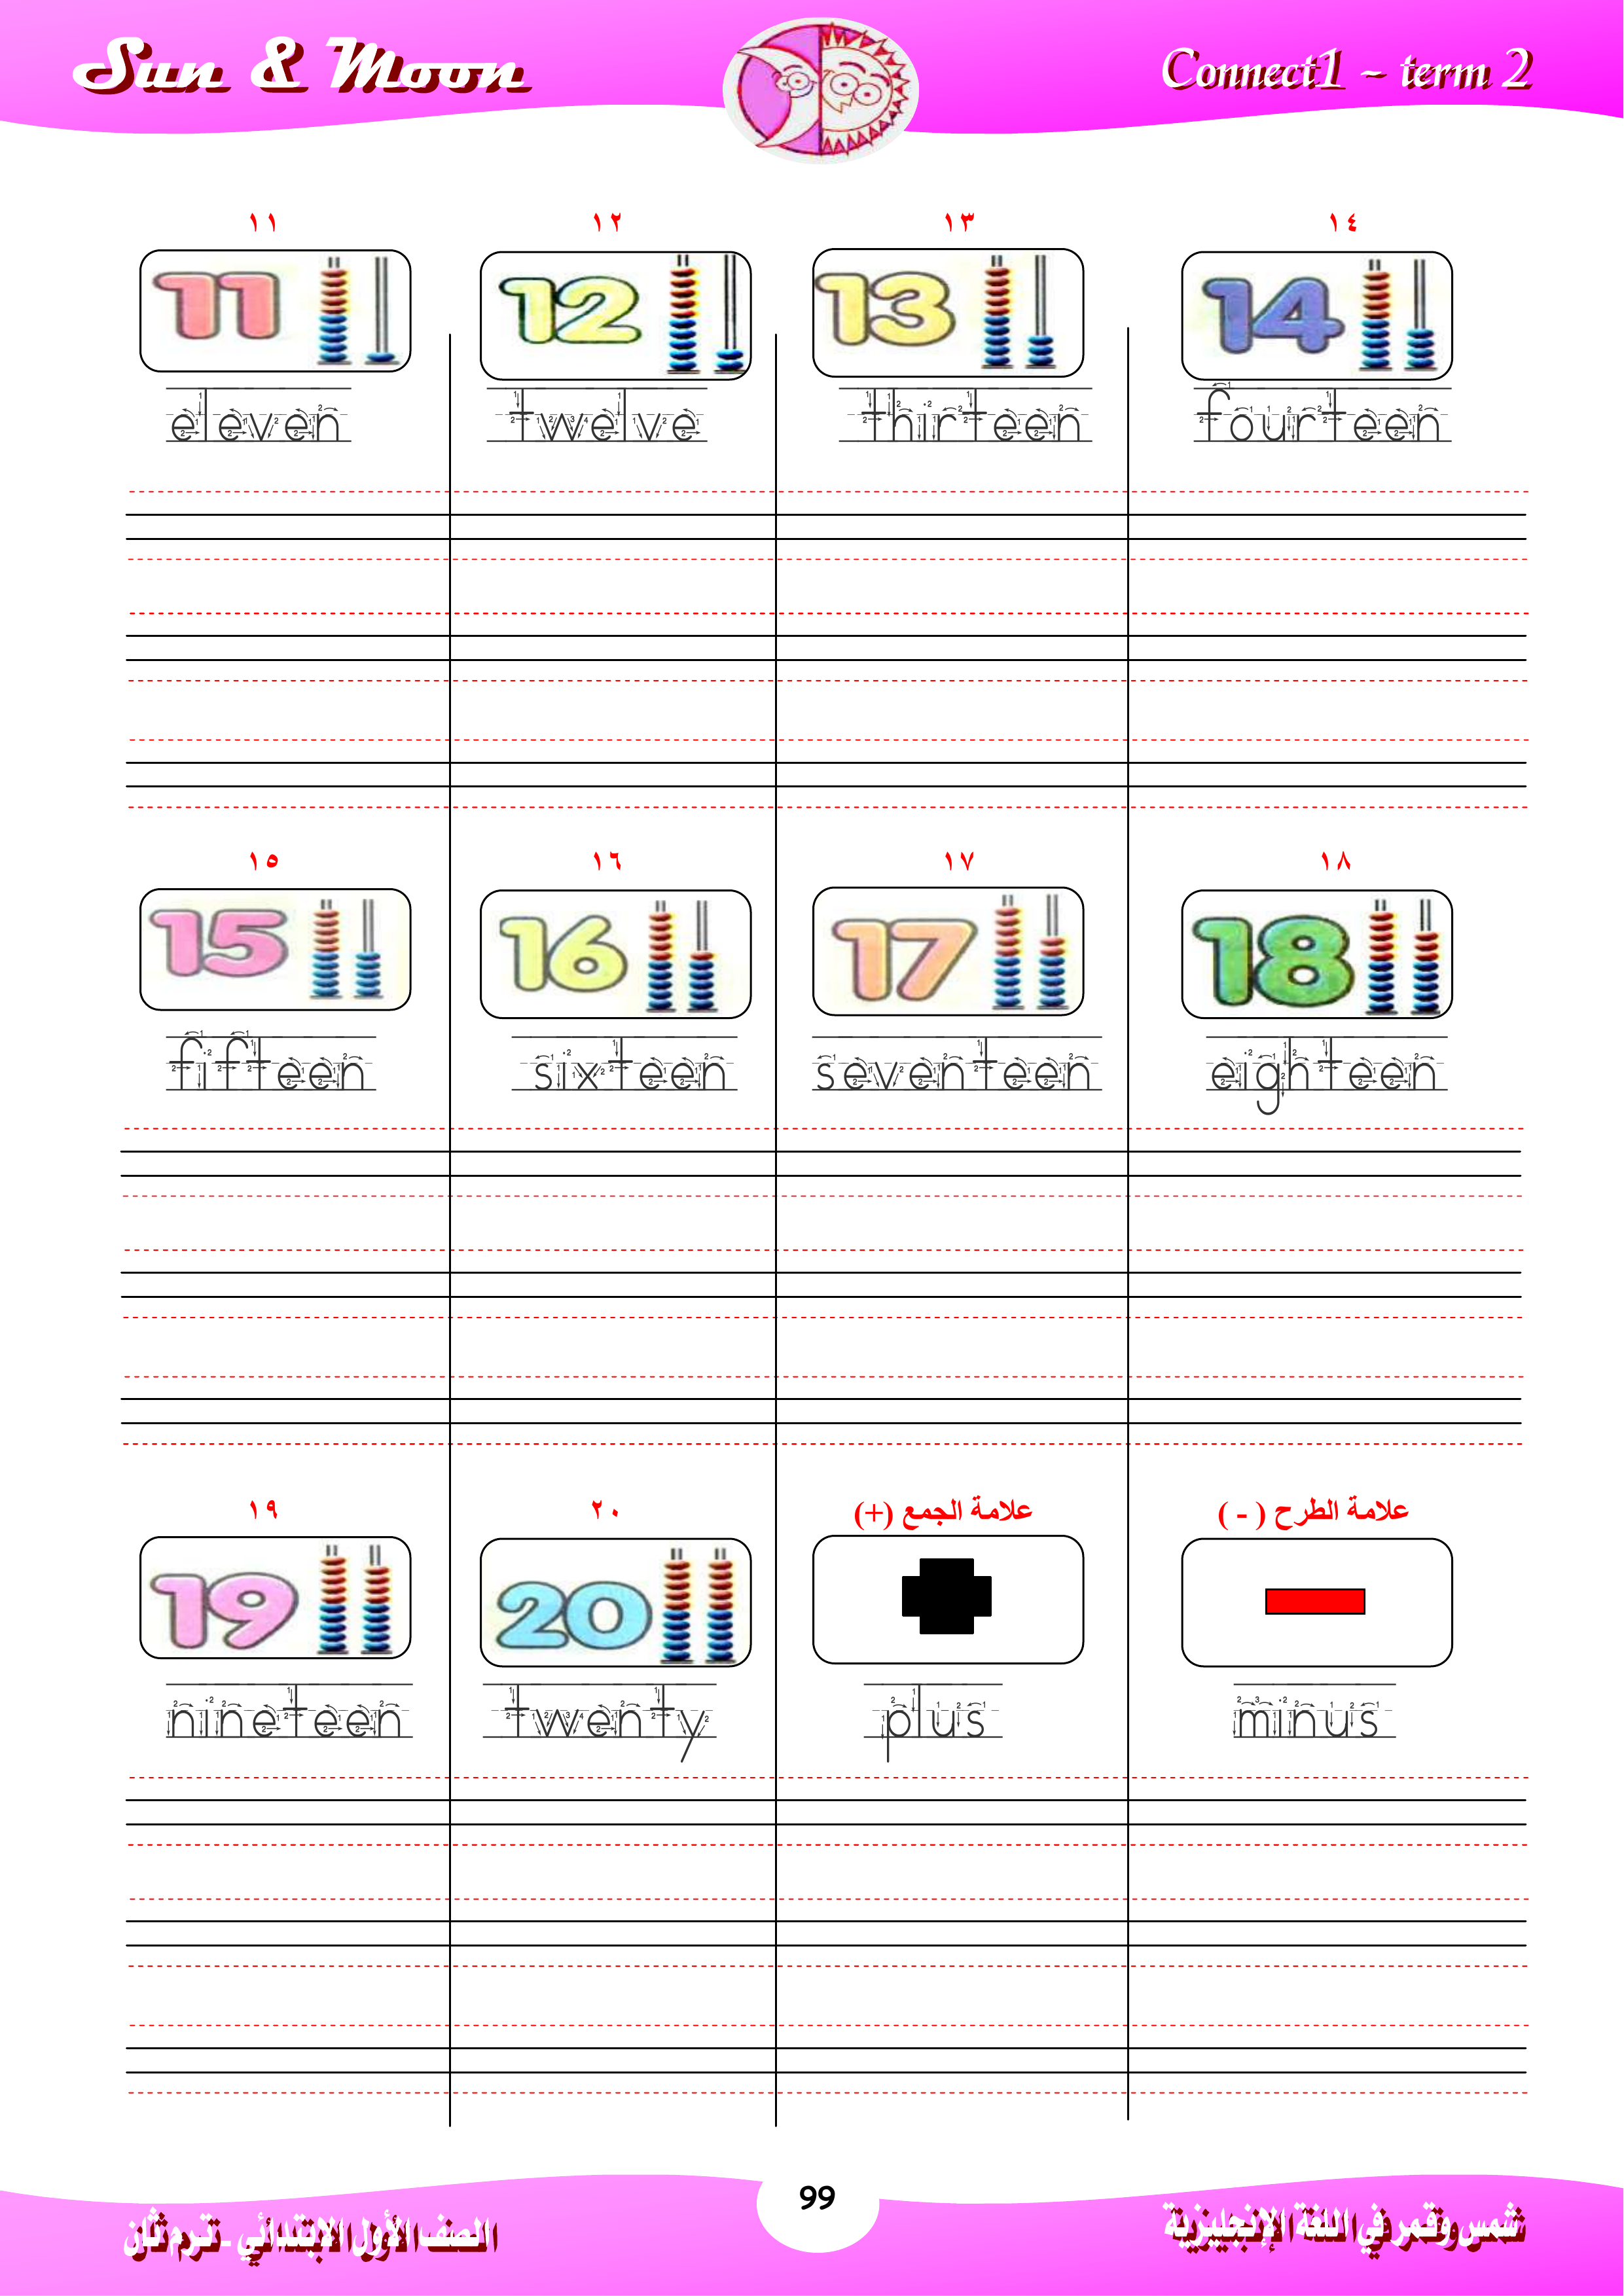 Sun & Moon
Connect1 – term 2
١١ ١٢ ١٣ ١٤
11 12 13 14
eleven twelve thirteen fourteen
١٥ ١٦ ١٧ ١٨
15 16 17 18
fifteen sixteen seventeen eighteen
١٩ ٢٠ علامة الجمع (+) علامة الطرح ( - )
19 20
nineteen twenty plus minus
99
الصف الأول الابتدائي - ترم ثان
شمس وقمر في اللغة الإنجليزية